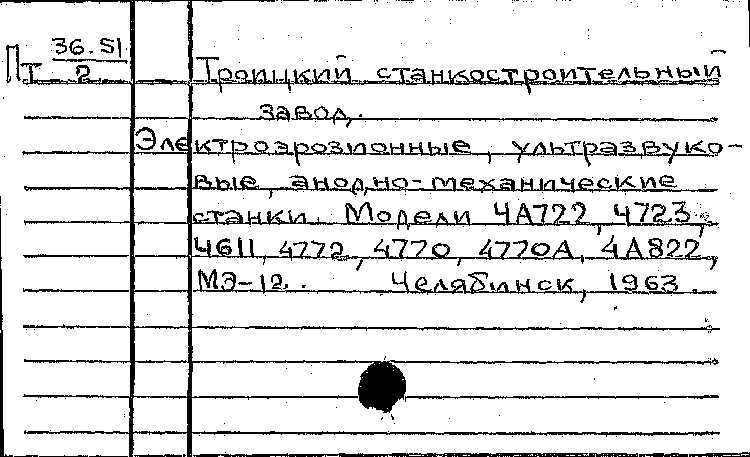 Пт 36.51
2
Троицкий станкостроительный
завод.
Электроэрозионные, ультразвуко-
вые, анодно-механические
станки. Модели 4А722, 4723,
4611, 4772, 4770, 4770А, 4А822,
МЭ-12. Челябинск, 1963.